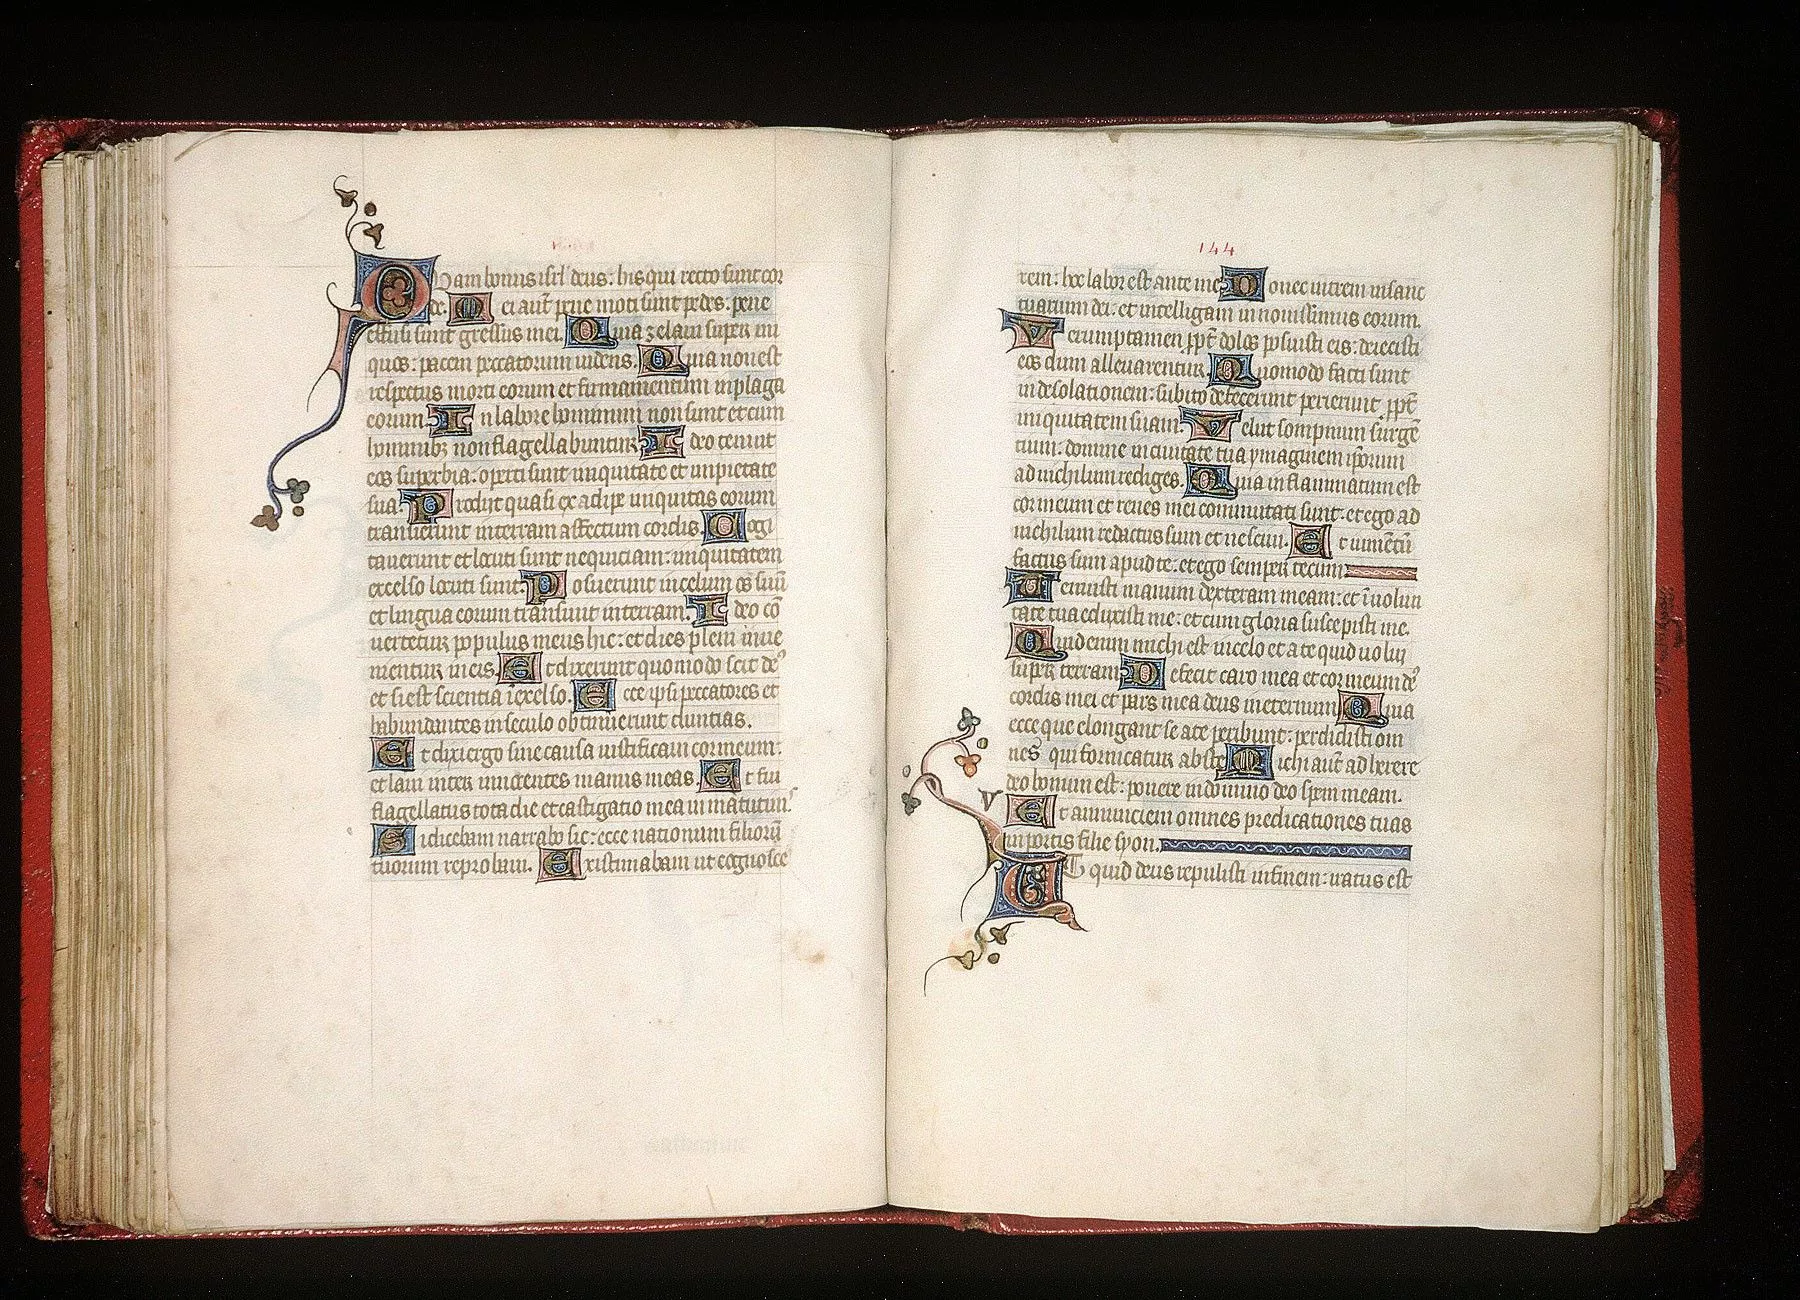 Quam bonus isrl deus: his qui recto sunt cor
de. Mei aut pene moti sunt pedes. pene
effusi sunt gressus mei. Quia zelavi super ini
quos: pacem peccatorum videns. Quia non est
respectus morti eorum et firmamentum in plaga
eorum. In labore hominum non sunt et cum
hominibz non flagellabuntur. Ideo tenuit
eos superbia: operti sunt iniquitate et impietate
sua. Prodiit quasi ex adipe iniquitas eorum
transierunt in terram affectum cordis. Cogi
taverunt et locuti sunt nequiciam: iniquitatem
excelso locuti sunt. Posuerunt in celum os suu
et lingua eorum transivit in terram. Ideo co
vertetur populus meus hic: et dies pleni inve
nientur in eis. Et dixerunt quomodo scit de
et si est scientia i excelso. Ecce ipsi peccatores et
habundantes in seculo obtinuerunt divitias.
Et dixi ergo sine causa iustificavi cor meum:
et lavi inter innocentes manus meas. Et fui
flagellatus tota die et castigatio mea in matutin
Si dicebam narrabo sic: ecce nationum filioru
tuorum reprobavi. Existimabam ut cognosce
144
rem: hoc labor est ante me Donec intrem in sanc
tuarium dei: et intelligam in novissimis eorum.
Verumptamen ppt dolos posuisti eis: deiecisti
eos dum allevarentur. Quomodo facti sunt
in desolationem: subito defecerunt perierunt ppt
iniquitatem suam. Velut sompnum surge
tium: domine in civitate tua ymaginem ipsorum
ad nichilum rediges. Quia inflammatum est
cor meum et renes mei commutati sunt: et ego ad
nichilum redactus sum et nescivi. Et iumentu
factus sum apud te: et ego semper tecum
Tenuisti manum dexteram meam: et i volun
tate tua eduxisti me: et cum gloria suscepisti me.
Quid enim michi est in celo et a te quid volui
super terram Defecit caro mea et cor meum de
cordis mei et pars mea deus in eternum Quia
ecce que elongant se a te peribunt: perdidisti om
nes qui fornicatur abs te Michi aut adherere
deo bonum est: ponere in domino deo spem meam.
v Et annunciem omnes predicationes tuas
in portis filie syon.
Ut quid deus repulisti in finem: iratus est